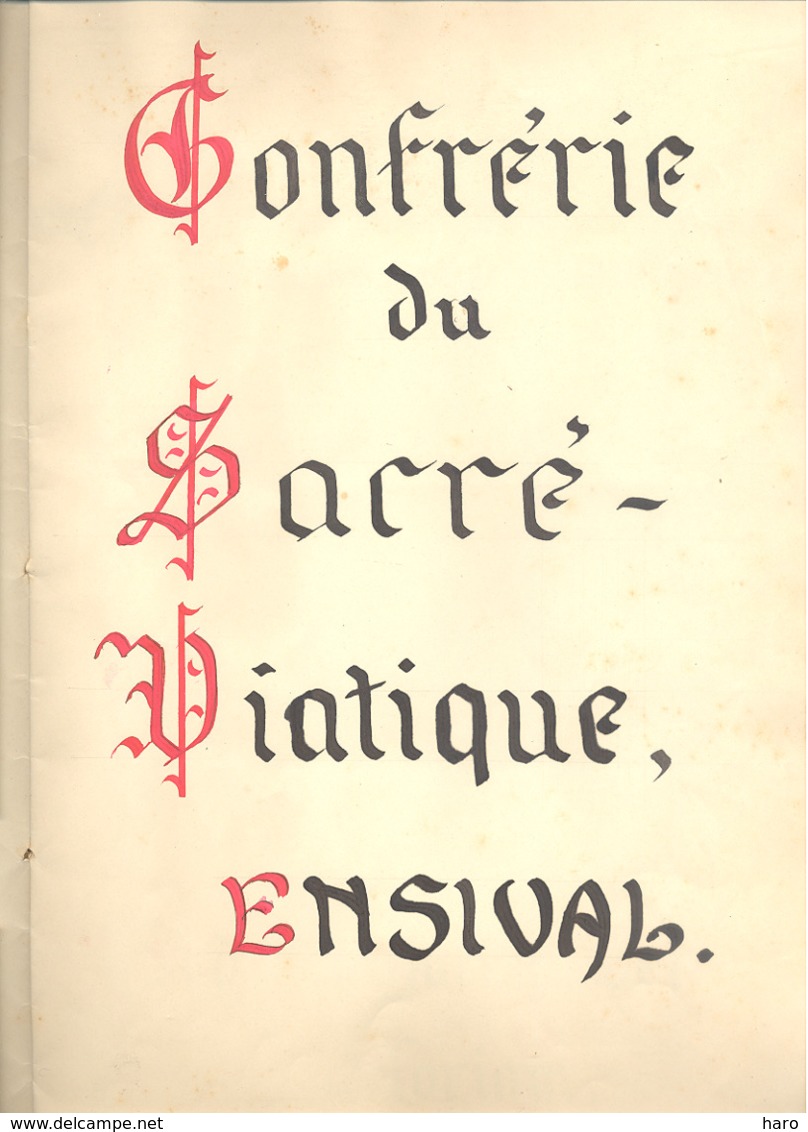 Confrérie
du
Sacré-
Viatique,
ENSIVAL.
www.delcampe.net
haro